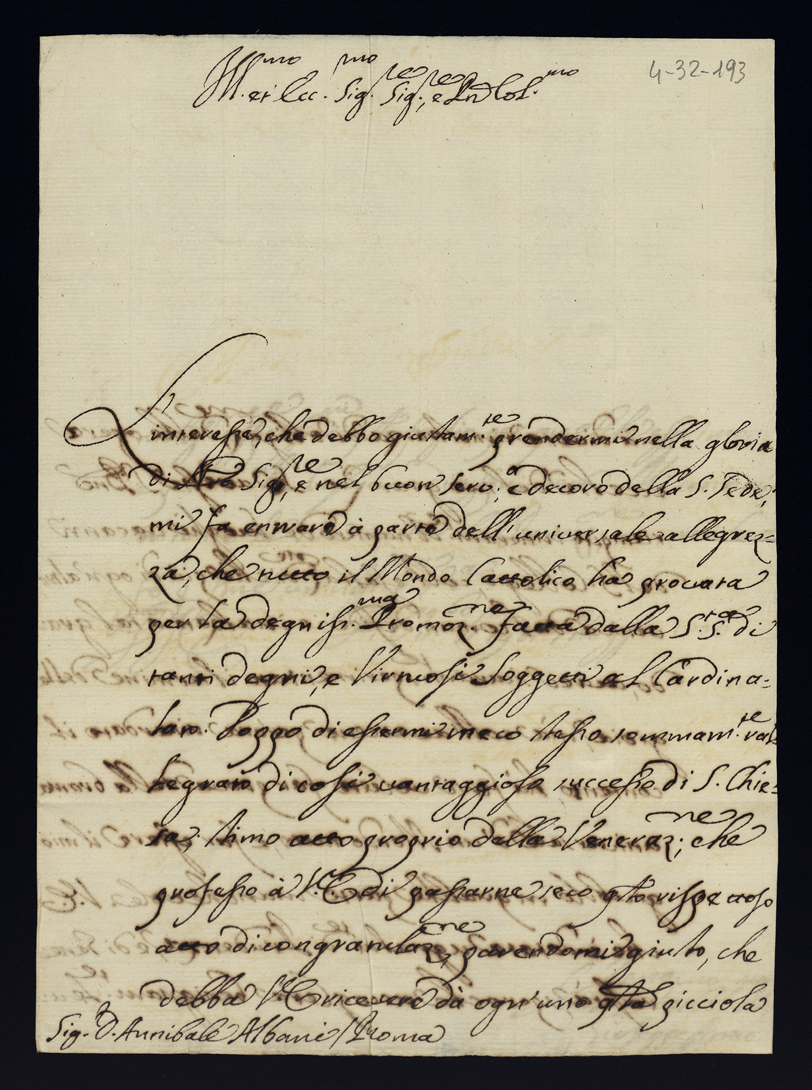 4-32-193
Ill.mo et Ecc.mo Sig.re Sig.re, e Pron Col.mo
L'interesse, che debbo giustam.te prendermi nella gloria
di Nro Sig.re, e nel buon serv.o, e decoro della S. Sede,
mi fà entrare à parte dell'universale allegrez=
za, che tutto il Mondo Cattolico hà provata
per la degniss.ma Promoz.ne fatta dalla S.tà S. di
tanti degni, e Virtuosi Soggetti al Cardina=
lato. Doppo di essermi meco stesso sommam.te ral=
legrato di così vantaggioso successo di S. Chie=
sa; stimo atto proprio della Veneraz.ne, che
professo à V.E. di passarne seco qto rispettoso
atto di congratulaz.ne, parendomi giusto, che
debba V.E. ricevere da ogn'uno qta picciola
Sig. D. Annibale Albani / Roma